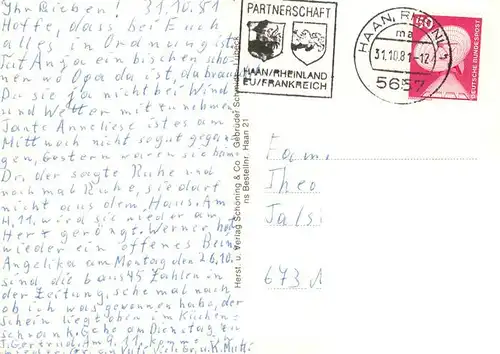 Ihr Lieben! 31.10.81
Hoffe, dass bei Euch
alles in Ordnung ist
Tut Anja ein bischen
wo Opa da ist, da brau
Du sie ja nicht bei Wind
und Wetter mitzunehmen
Tante Anneliese ist es am
Mittwoch nicht so gut gegan-
gen, Gestern waren sie beim
Dr. der sagte Ruhe und
nochmal Ruhe, sie darf
nicht aus dem Haus. Am
4.11. wird sie wieder am
Herz geröngt. Werner hat
wieder ein offenes Bein
Angelika am Montag den 26.10.
sind die Zahlen in
der Zeitung, sehe mal nach
ob ich was gewonnen habe, der
Schein liegt oben im Küchen-
schrank. Gehe am Dienstag zu
9.11. komme
u. K. Mutti
PARTNERSCHAFT
HAAN/RHEINLAND
EU/FRANKREICH
HAAN, RHEINL 1
ma
31.10.81-12
5657
60
DEUTSCHE BUNDESPOST
Herst. u. Verlag Schöning & Co. · Gebrüder Schmidt · Lübeck
ns Bestellnr. Haan 21
Fam
Theo
Talst
673 N